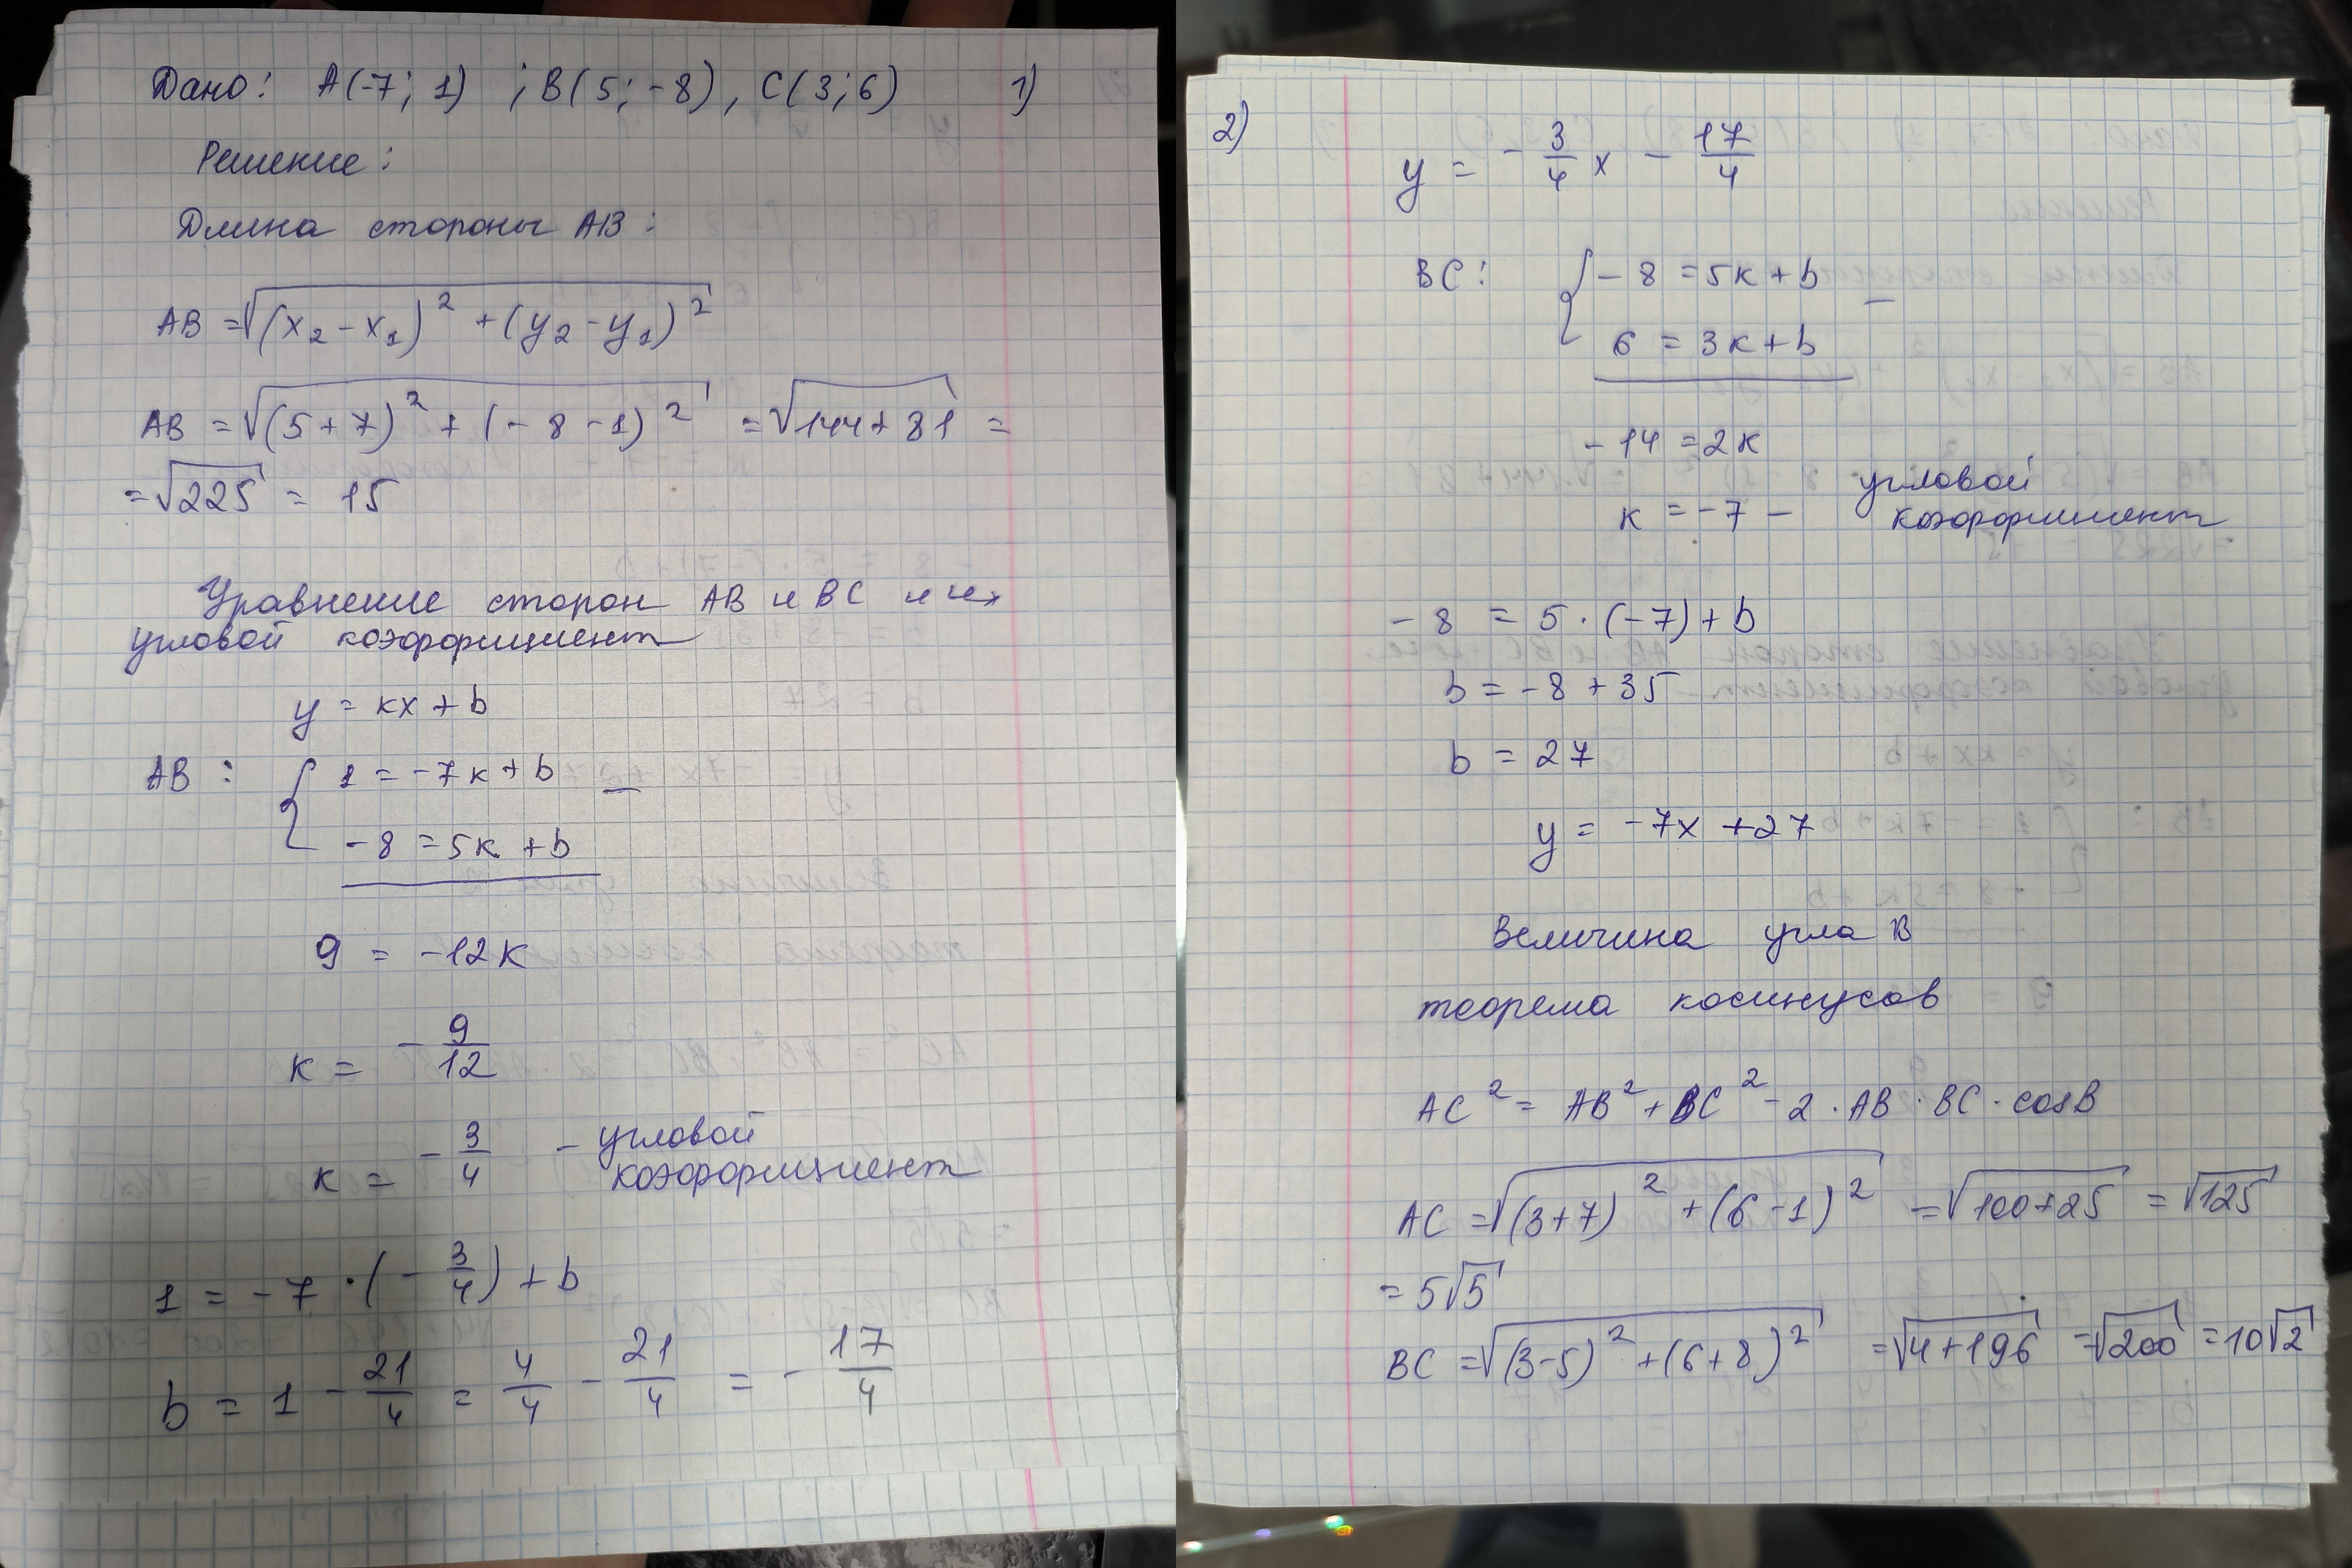 Дано: A(-7; 1) ; B(5; -8), C(3; 6) 1)
Решение:
Длина стороны AB:
AB = √((x₂ - x₁)² + (y₂ - y₁)²)
AB = √((5+7)² + (-8-1)²) = √(144+81) =
= √225 = 15
Уравнение сторон AB и BC и их
угловой коэффициент
y = кx + b
AB: { 1 = -7к + b –
-8 = 5к + b
9 = -12к
к = - 9/12
к = - 3/4 - угловой
коэффициент
1 = -7 · (- 3/4) + b
b = 1 - 21/4 = 4/4 - 21/4 = - 17/4
2)
y = - 3/4 x - 17/4
BC: { -8 = 5к + b –
6 = 3к + b
-14 = 2к
к = -7 - угловой
коэффициент
-8 = 5 · (-7) + b
b = -8 + 35
b = 27
y = -7x + 27
Величина угла B
теорема косинусов
AC² = AB² + BC² - 2 · AB · BC · cosB
AC = √((3+7)² + (6-1)²) = √(100+25) = √125
= 5√5
BC = √((3-5)² + (6+8)²) = √(4+196) = √200 = 10√2